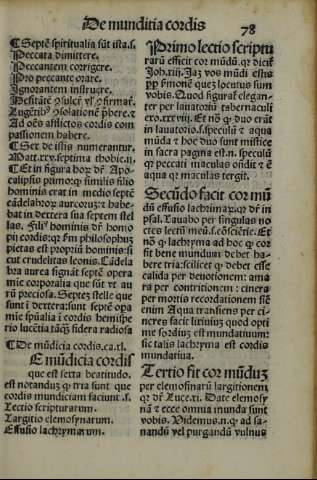 De munditia cordis
78
¶ Septẽ spiritualia sũt ista.s.
Peccata dimittere.
Peccantem corrigere.
Pro peccante orare.
Ignorantem instruere.
Ad oẽs afflictos cordis com
passionem habere.
¶ Sex de istis numerantur.
Matt.xxv. septima thobie.ij.
¶ Et in figura hoꝝ dr̃ Apo
calipsis primo: ꝙ similis filio
hominis erat in medio septẽ
cãdelabroꝝ aureoꝝ: ⁊ habe-
bat in dextera sua septem stel
las. Filiꝰ hominis dr̃ homo
piꝰ cordis: ꝙ Fm philosophuꝫ
pietas est propriũ hominis: si
cut crudelitas leonis. Cãdela
bra aurea signãt septẽ opera
mie corporalia que sũt vt au
rũ preciosa. Septeꝫ stelle que
sunt ĩ dextera: sunt septẽ opa
mie spũalia ĩ cordis hemispe
rio lucẽtia tãꝗ̃ sidera radiosa
¶ De mũdicia cordis.ca.l.
E mũdicia cordis
que est sexta beatitudo.
est notanduꝫ ꝙ tria sunt que
cordis mundiciam faciunt.s.
Lectio scripturarum.
Largitio elemosynarum.
Effusio lachrymarum.
Primo lectio scriptu
rarũ efficit cor mũdũ. ꝙ dicit̃
Joh.xiij. Jaꝫ vos mũdi estis
ꝓp̃ ƥmonẽ queꝫ locutus sum
vobis. Quod figurat̃ elegan-
ter per lauatoriũ tabernaculi
exo.xxxviij. Et nõ ꝙ duo erũt
in lauatorio.s. speculũ ⁊ aqua
mũda ⁊ hoc duo sunt mistice
in sacra pagina est.n. speculũ
ꝙ peccati maculas oñdit ⁊ ẽ
aqua ꝙ maculas tergit.
Secũdo facit cor mũ
dũ effusio lachrimaꝝ: ꝙ dr̃ in
psal. Lauabo per singulas no
ctes lectũ meũ.i.cõsciẽtiã. Et
nõ ꝙ lachryma ad hoc ꝙ cor
fit bene mundum debet ha-
bere tria: scilicet ꝙ debet esse
calida per deuotionem: ama
ra per contritionem: cinera
per mortis recordationem siẽ
enim Aqua transiens per ci-
neres facit lixiuiuꝫ quod opti
me sordiuꝫ est mundatiuum:
sic talis lachryma est cordis
mundatiua.
Tertio fit cor mũduꝫ
per elemosinarũ largitionem
ꝙ dr̃ Luce.xi. Date elemosy
nam ⁊ ecce omnia munda sunt
vobis. Videmus.n. ꝙ ad sa-
nandũ vel purgandũ vulnus